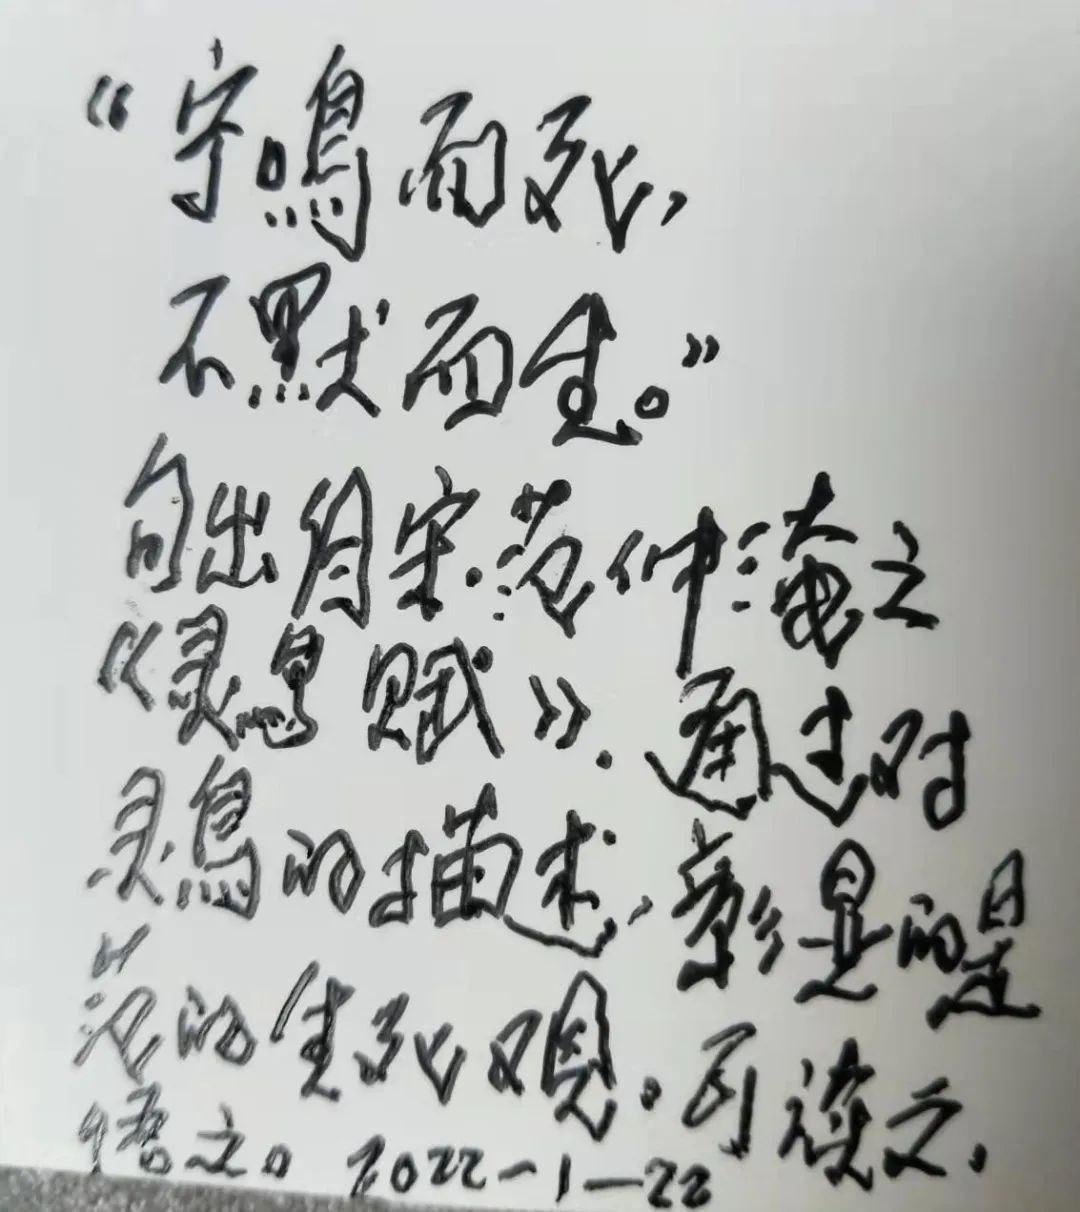 “宁鸣而死，
不默而生。”
句出自宋.范仲淹之
《灵乌赋》.通过对
灵鸟的描述，彰显的是
范的生死观。可读之，
悟之。2022-1-22